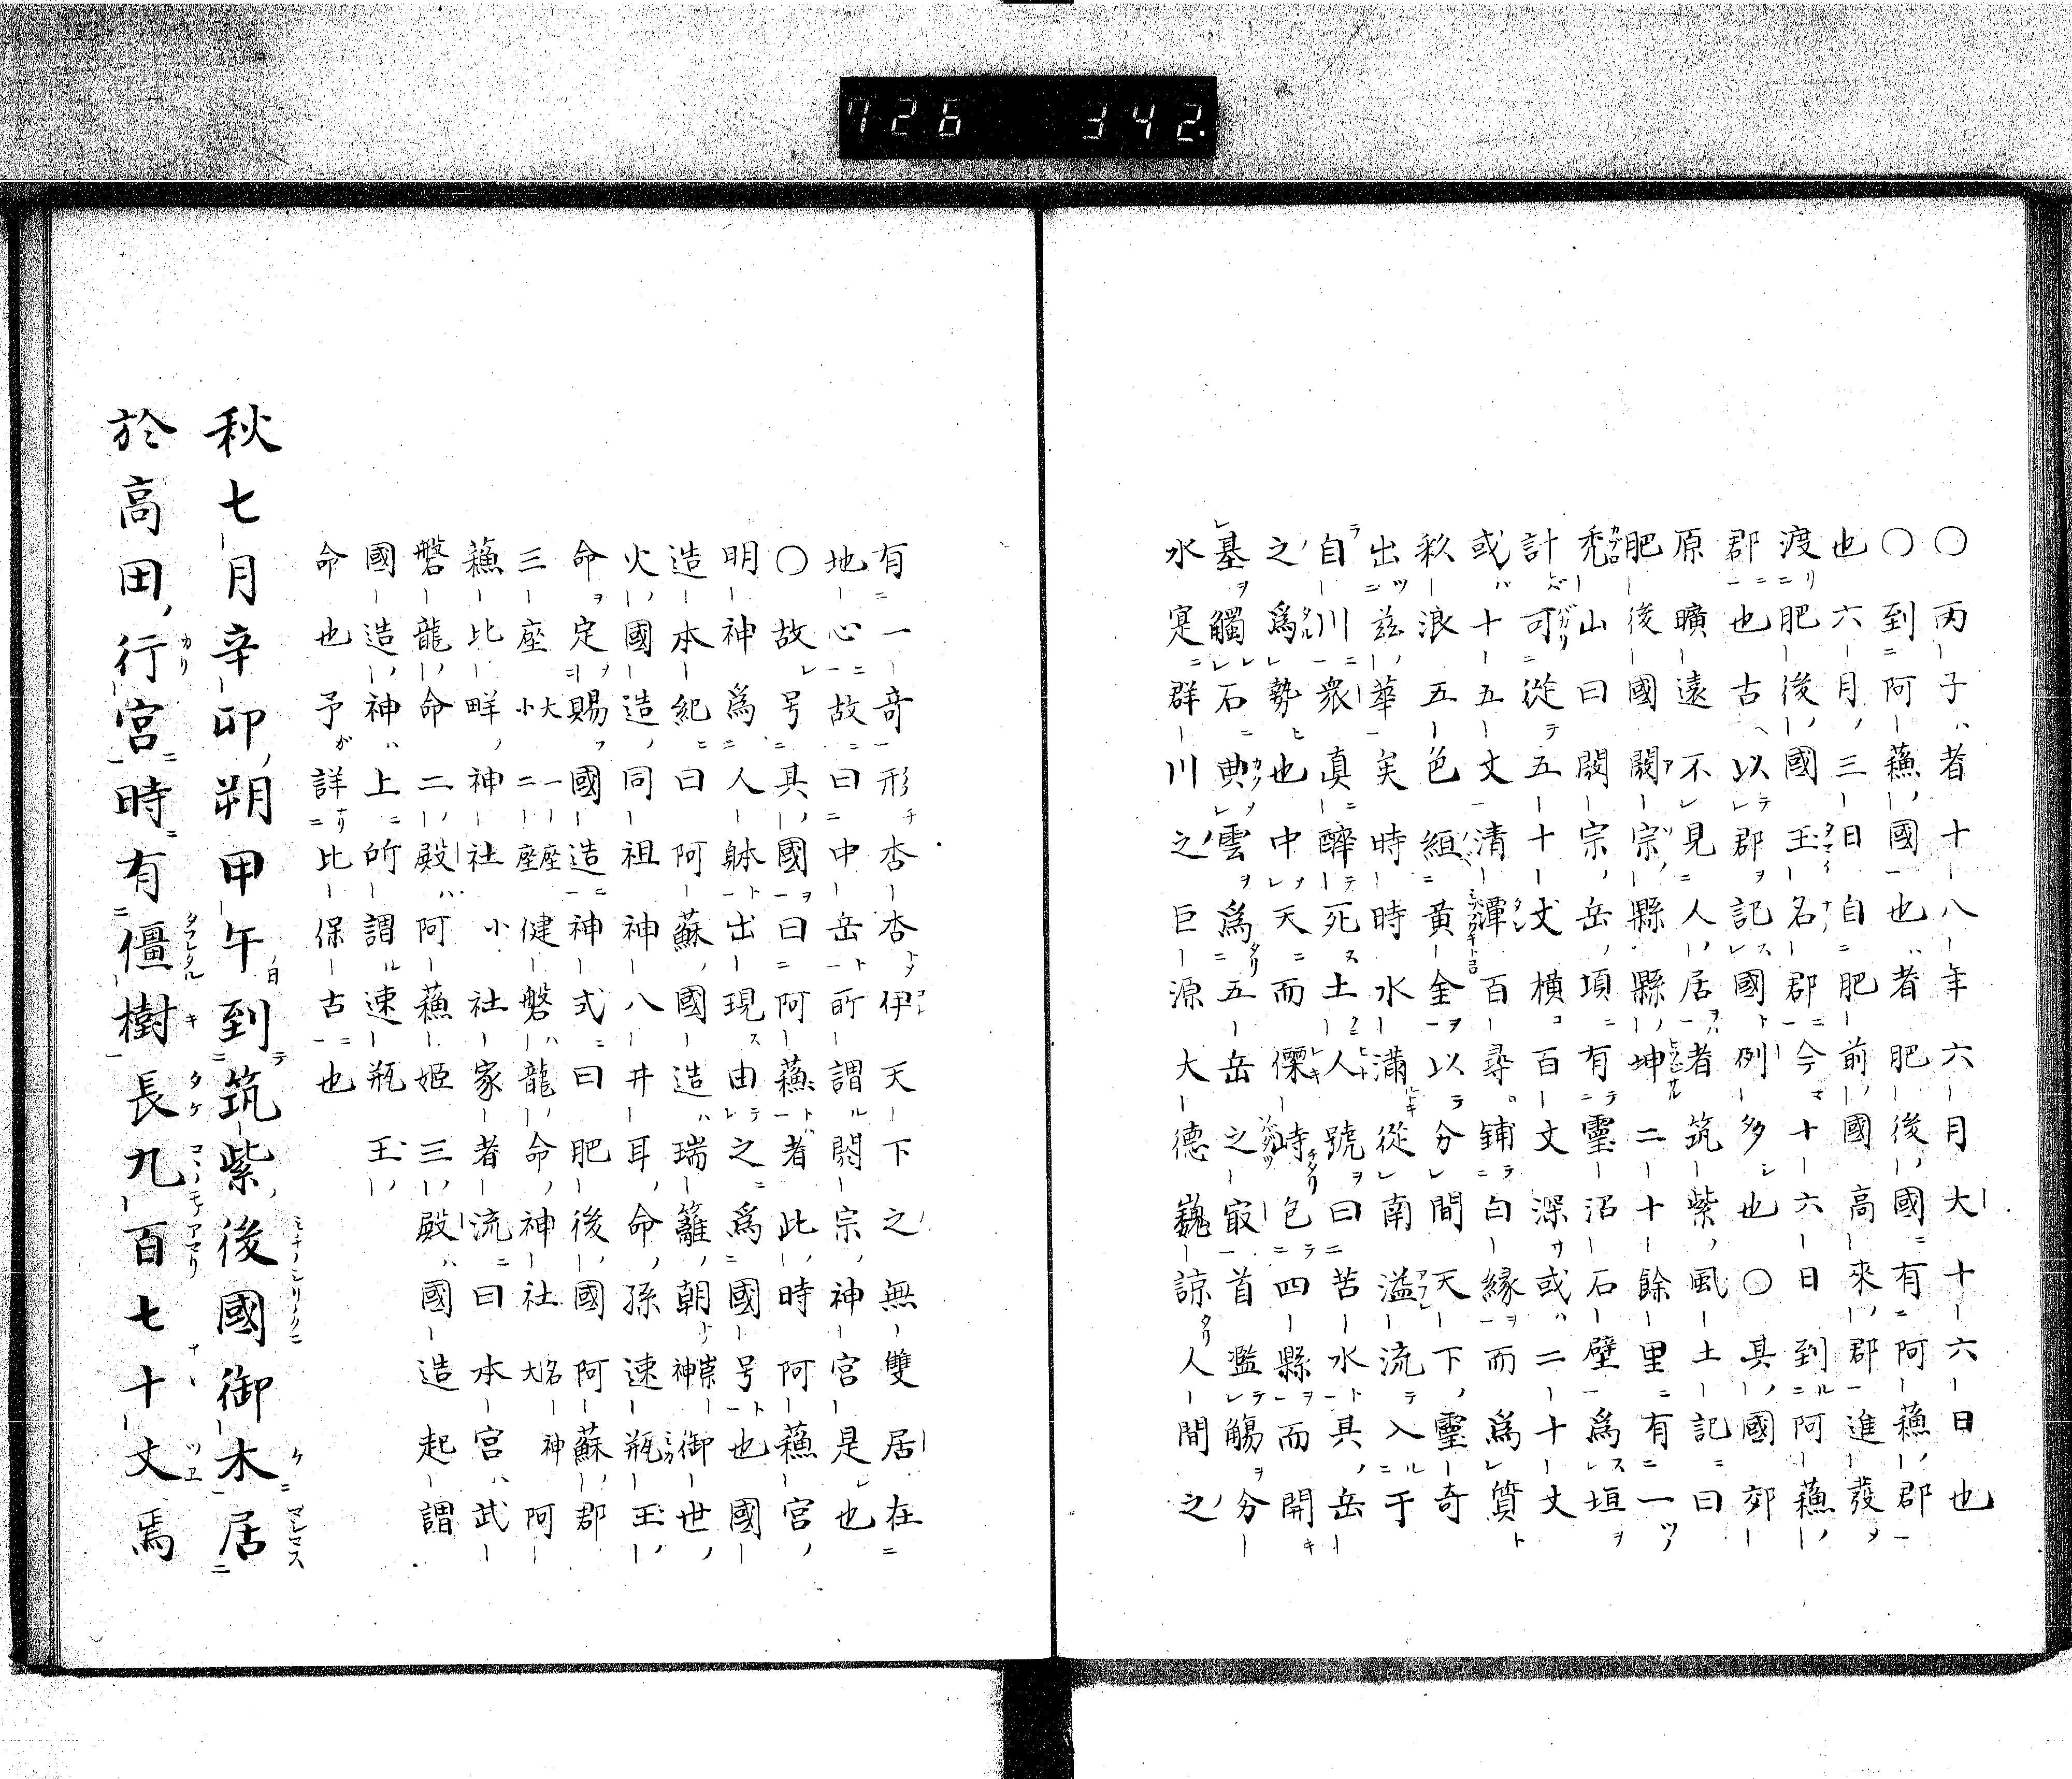 726 342.
〇丙子者十八年六月大十六日也
〇到阿蘓國也者肥後國有阿蘓郡
也六月三日自肥前國高來郡進發
渡肥後國玉名郡今十六日到阿蘓
郡也古以郡記國例多也〇其國郊
原曠遠不見人居者筑紫風土記曰
肥後國閼宗縣縣坤二十餘里有一
禿山曰閼宗岳項有靈沼石壁為垣
計可從五十丈横百丈深或二十丈
或十五丈清潭百尋鋪白縁而為質
浪五色絙黄金以分間天下靈奇
出茲華矣時時水滿從南溢流入于
自川衆眞醉死土人號曰苦水其岳
之爲勢也中天而傑峙包四縣而開
基觸石典雲爲五岳之最首濫觴分
水寔群川之巨源大德巍諒人間之
有一竒形杏杏伊天下之無雙居在
地心故曰中岳所謂閼宗神宮是也
〇故号其國曰阿蘓者此時阿蘓宮
明神爲人躰出現由之爲國号也國
造本紀曰阿蘇國造瑞籬朝崇神御世
火國造同祖神八井耳命孫速瓶玉
命定賜國造神式曰肥後國阿蘇郡
三座大一座小二座健磐龍命神社名神大阿
蘓比咩神社小社家者流曰本宮武
磐龍命二殿阿蘓姬三殿國造起謂
國造神上所謂速瓶玉
命也予詳比保古也
秋七月辛卯朔甲午到筑紫後國御木居
於高田行宮時有僵樹長九百七十丈焉